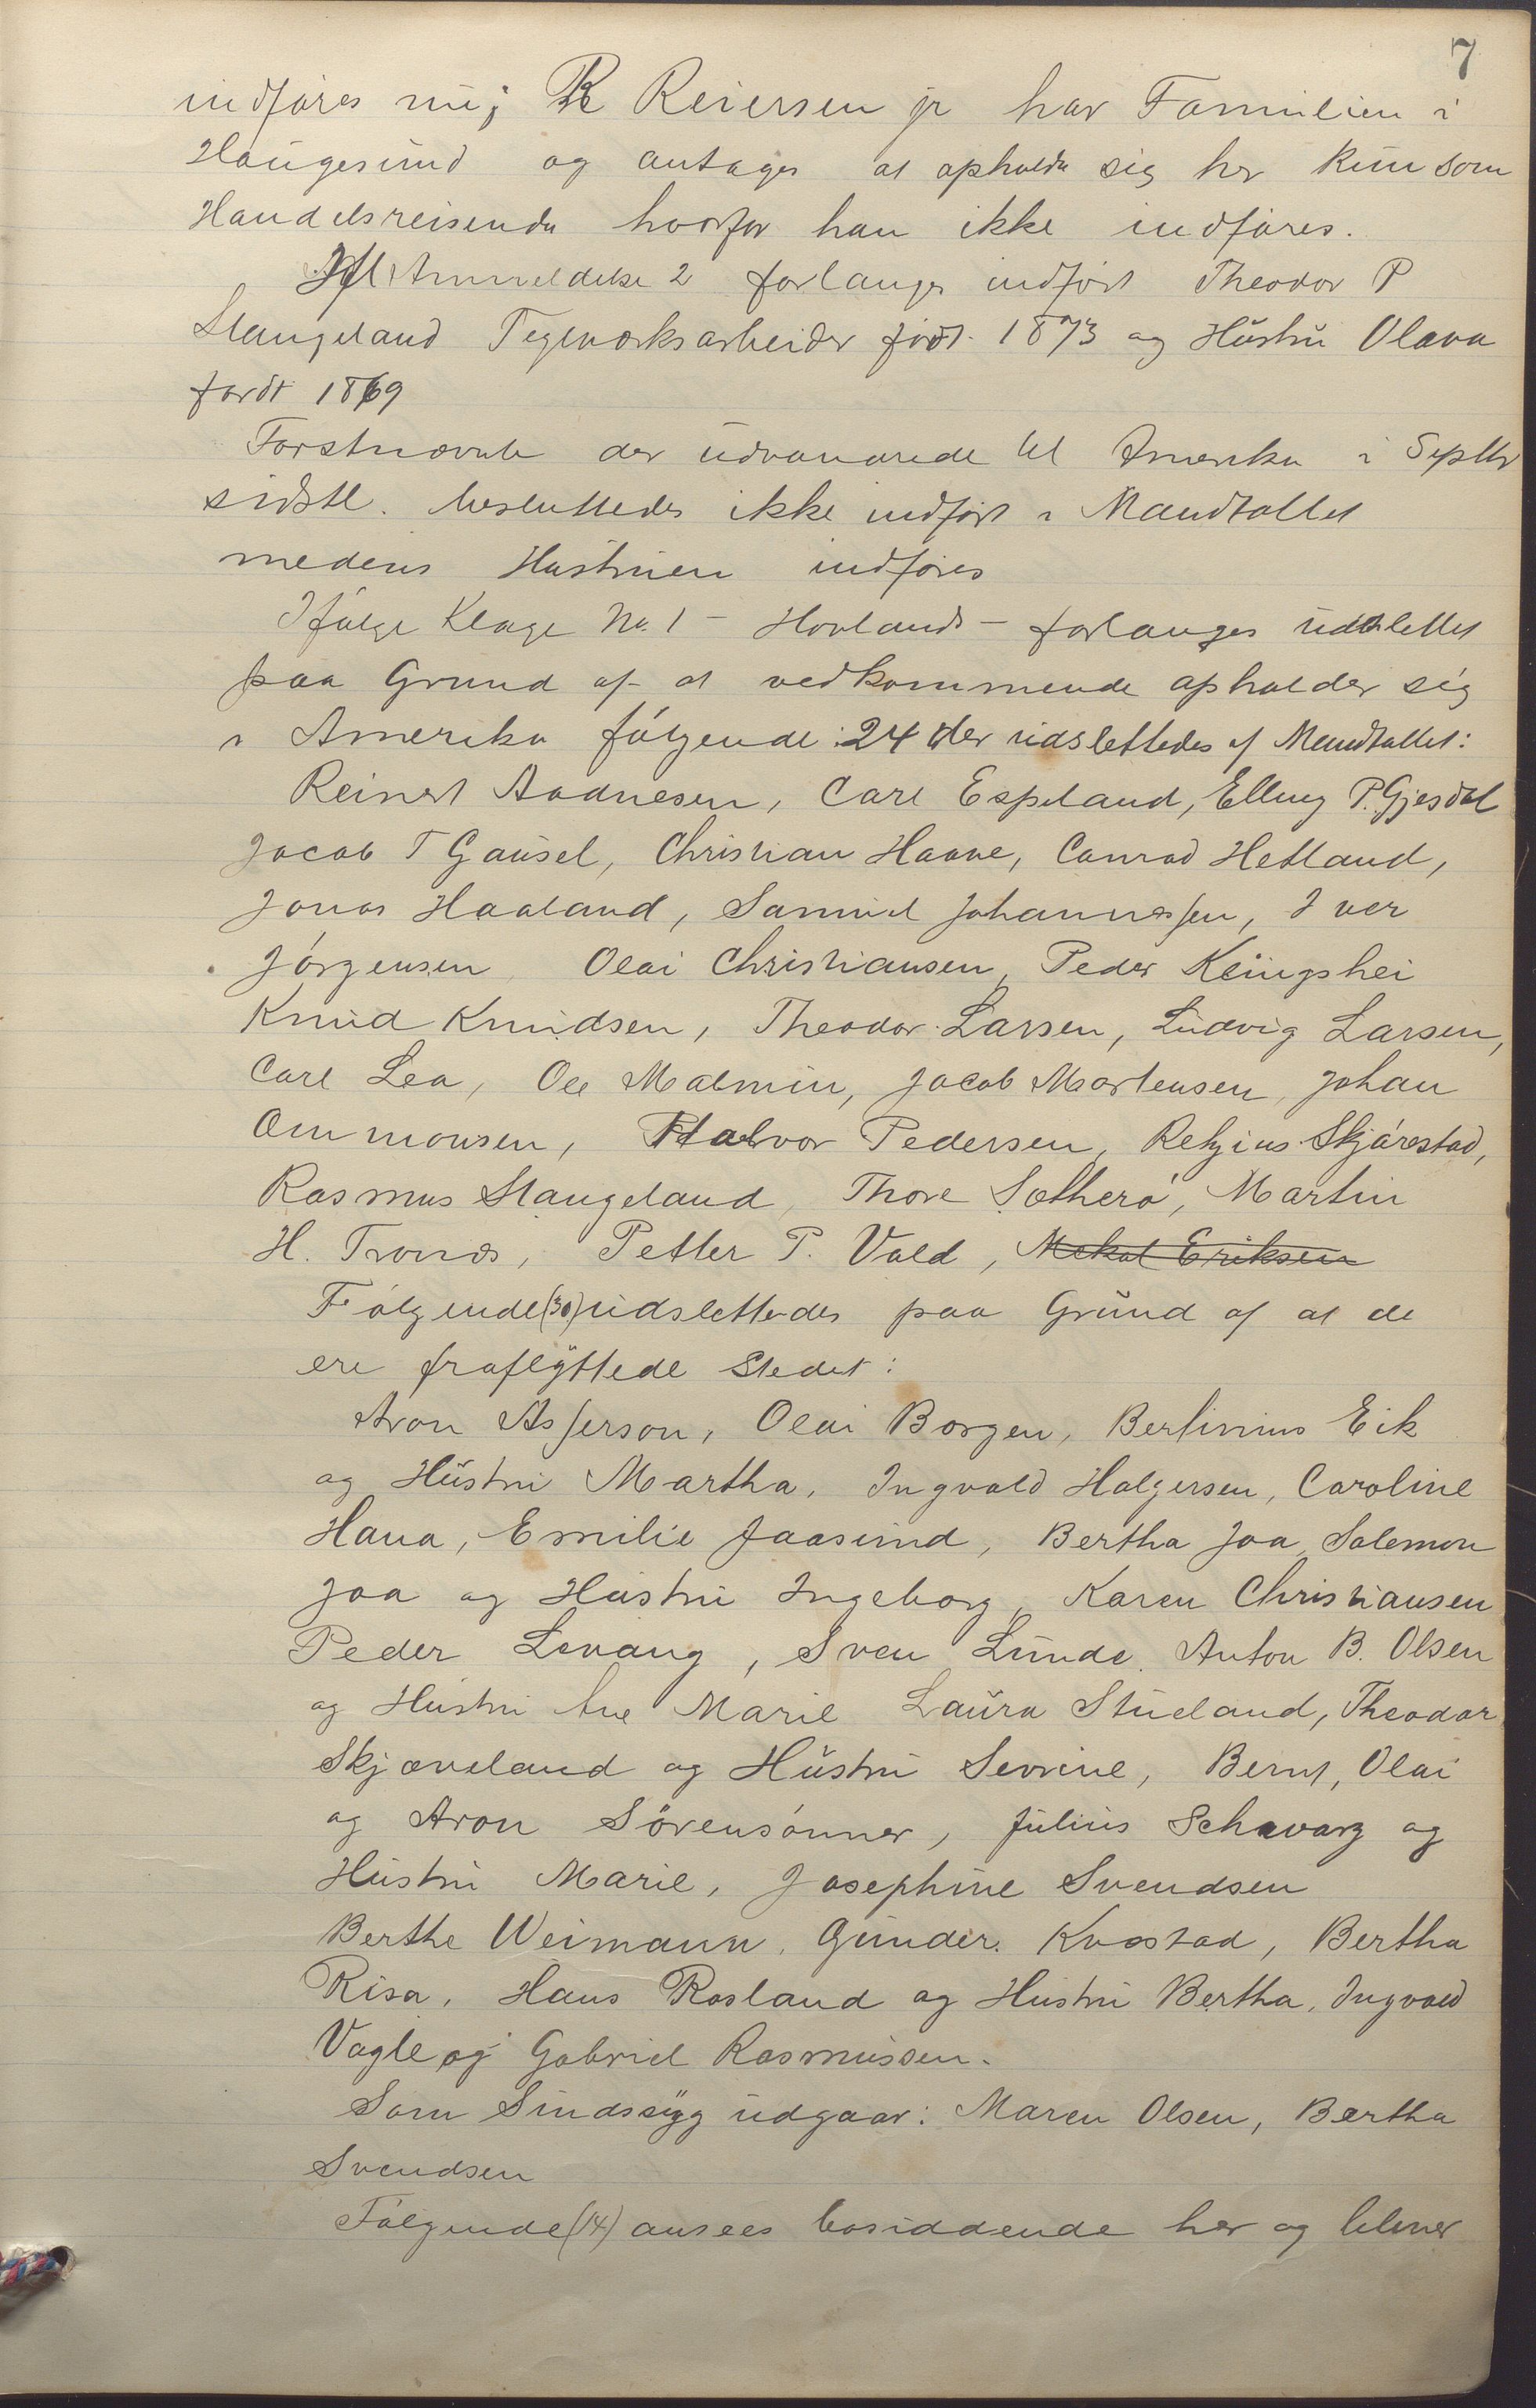 7
indføres nu; R Reiersen jr har Familien i
Haugesund og antages at opholde sig her kun som
Handelsreisende hvorfor han ikke indføres.
Ifl Anmeldelse 2 forlanges indført Theodor P
Stangeland Teglværksarbeider født 1873 og Hustru Olava
født 1869
Førstnævnte der udvandrede til Amerika i Septbr
sidstl. besluttedes ikke indført i Mandtallet
medens Hustruen indføres
Ifølge Klage No. 1 - Hovlands - forlanges udslettet
paa Grund af at vedkommende opholder sig
i Amerika følgende 24 der udslettedes af Mandtallet:
Reinert Aadnesen, Carl Espeland, Elling P. Gjesdal
Jacob T Gausel, Christian Haave, Conrad Hetland,
Jonas Haaland, Samuel Johannessen, Iver
Jørgensen, Olai Christiansen, Peder Klungshei
Knud Knudsen, Theodor Larsen, Ludvig Larsen,
Carl Lea, Ole Malmin, Jacob Mortensen, Johan
Ommonsen, Halvor Pedersen, Retzius Skjørestad,
Rasmus Stangeland, Thore Sætherø, Martin
H. Tronæs, Petter P. Vold, Mikal Eriksen
Følgende (30) udslettedes paa Grund af at de
ere fraflyttede Stedet:
Aron Asserson, Olai Borgen, Bertinius Eik
og Hustru Martha, Ingvald Holgersen, Caroline
Hana, Emilie Jaasund, Bertha Joa, Salemon
Joa og Hustru Ingeborg, Karen Christiansen
Peder Levang, Sven Lunde, Anton B. Olsen
og Hustru Ane Marie Laura Stueland, Theodor
Skjæveland og Hustru Severine, Bernt, Olai
og Aron Sørensønner, Julius Schwarz og
Hustru Marie, Josephine Svendsen
Berthe Weimann, Gunder Kvæstad, Bertha
Risa, Hans Rosland og Hustru Bertha, Ingvald
Vagle og Gabriel Rasmussen.
Som Sindssyg udgaar: Maren Olsen, Bertha
Svendsen
Følgende (14) ansees bosiddende her og bliver